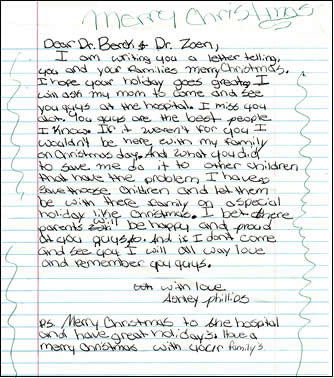 Merry Christmas
Dear Dr. Berdi & Dr. Zoen,
I am writing you a letter telling,
you and your families merry Christmas.
I hope your holiday goes great, I
will ask my mom to come and see
you guys at the hospital. I miss you
alot. You guys are the best people
I know. If it weren't for you I
wouldn't be here with my family
on Christmas day. And what you did
to save me do it to other children
that have the problem I have,
save thoose children and let them
be with there family on a special
holiday like Christmas. I bet there
parents will be happy and proud
at you guys to. And is I don't come
and see you I will all way love
and remember you guys.
with love
Ashley phillips
P.S. Merry Christmas to the hospital
and have great holiday's. Have a
merry Christmas with your family's.